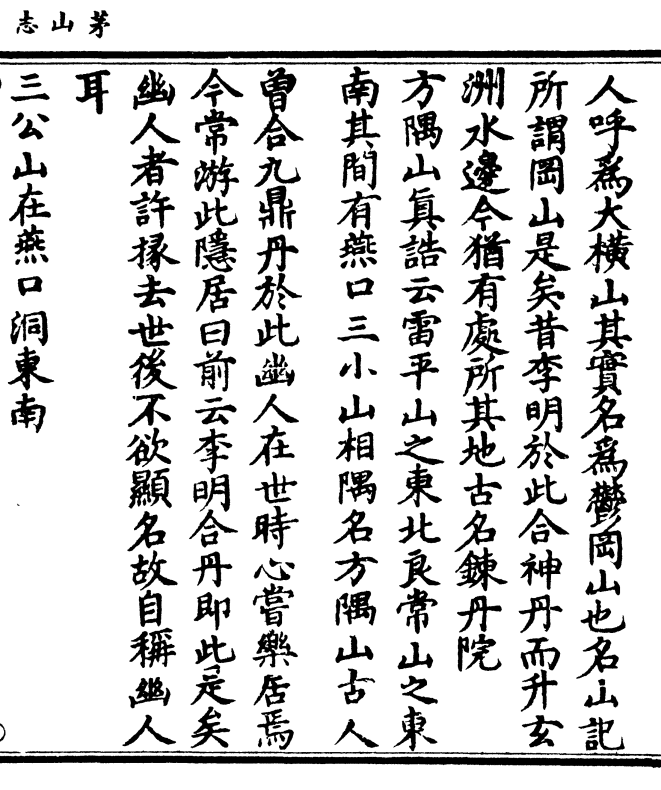 茅山志
人呼為大橫山其實名為鬱岡山也名山記
所謂岡山是矣昔李明於此合神丹而升玄
洲水邊今猶有處所其地古名錬丹院
方隅山真誥云雷平山之東北良常山之東
南其間有燕口三小山相隅名方隅山古人
曾合九鼎丹於此幽人在世時心嘗樂居焉
今常游此隱居曰前云李明合丹即此是矣
幽人者許掾去世後不欲顯名故自稱幽人
耳
三公山在燕口洞東南